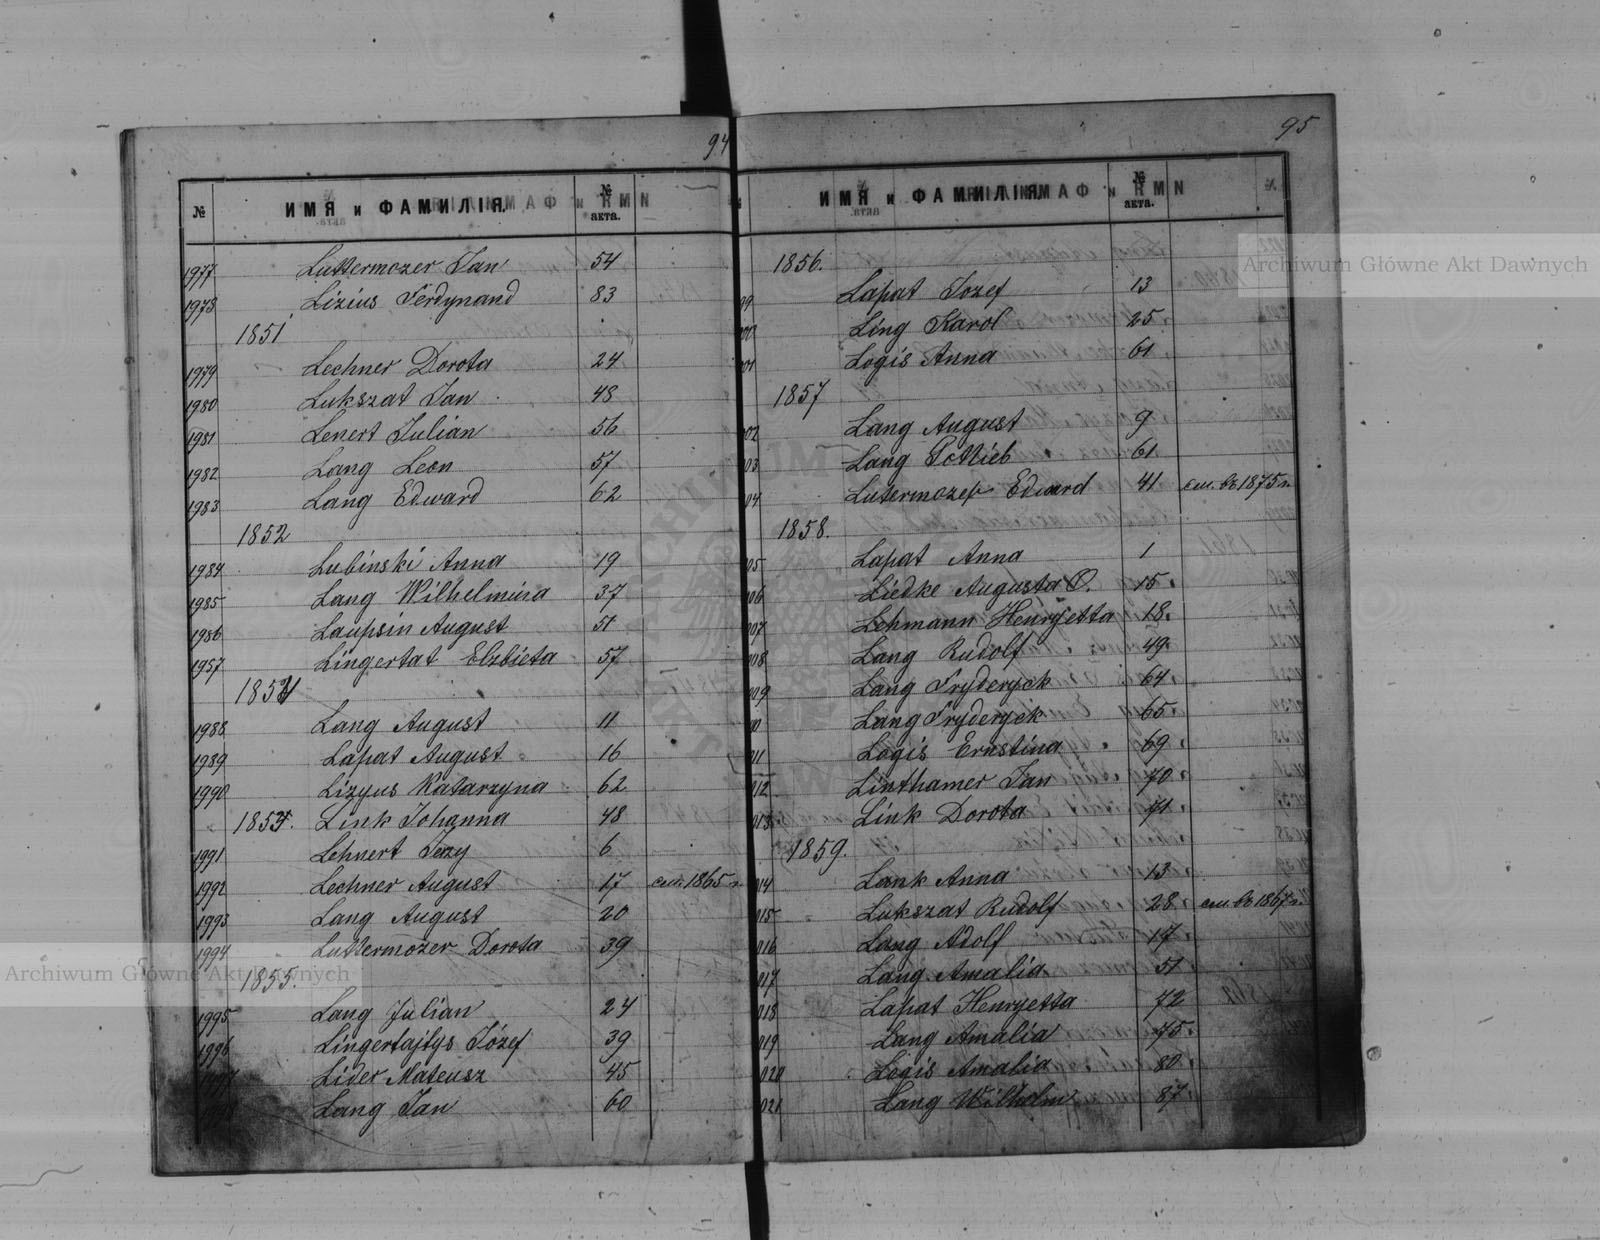 94
№ ИМЯ и ФАМИЛІЯ. № акта.
1977 Luttermozer Jan 54
1978 Lizius Ferdynand 83
1851
1979 Lechner Dorota 24
1980 Lukszat Jan 48
1981 Lenert Julian 56
1982 Lang Leon 57
1983 Lang Edward 62
1852
1984 Lubinski Anna 19
1985 Lang Wilhelmina 37
1986 Laupsin August 51
1987 Lingertat Elzbieta 57
1988 Lang August 11
1989 Lapat August 16
1990 Lizyus Katarzyna 62
Link Johanna 48
1991 Lehnert Jerzy 6
1992 Lechner August 17 см. 1865 г.
1993 Lang August 20
1994 Luttermozer Dorota 39
1855.
1995 Lang Julian 24
1996 Lingertajtys Józef 39
Lider Mateusz 45
Lang Jan 60
95
ИМЯ и ФАМИЛІЯ № акта.
1856.
99 Lapat Jozef 13
00 Ling Karol 25
01 Logis Anna 61
1857
02 Lang August 9
03 Lang Gottlieb 61
04 Lutermozer Edward 41 см. въ 1875 г.
1858.
05 Lapat Anna 1
06 Liedke Augusta O. 15
07 Lehmann Henryetta 18
08 Lang Rudolf 49
09 Lang Fryderyck 64
Lang Fryderyck 65
011 Logis Ernstina 69
012 Linthamer Jan 70
013 Link Dorota 71
1859.
014 Lank Anna 13
015 Lukszat Rudolf 28 см. въ 1867 г.
016 Lang Adolf 17
017 Lang Amalia 51
018 Lapat Henryetta 72
019 Lang Amalia 75
020 Logis Amalia 80
021 Lang Wilhelm 87
Archiwum Główne Akt Dawnych
Archiwum Główne Akt Dawnych